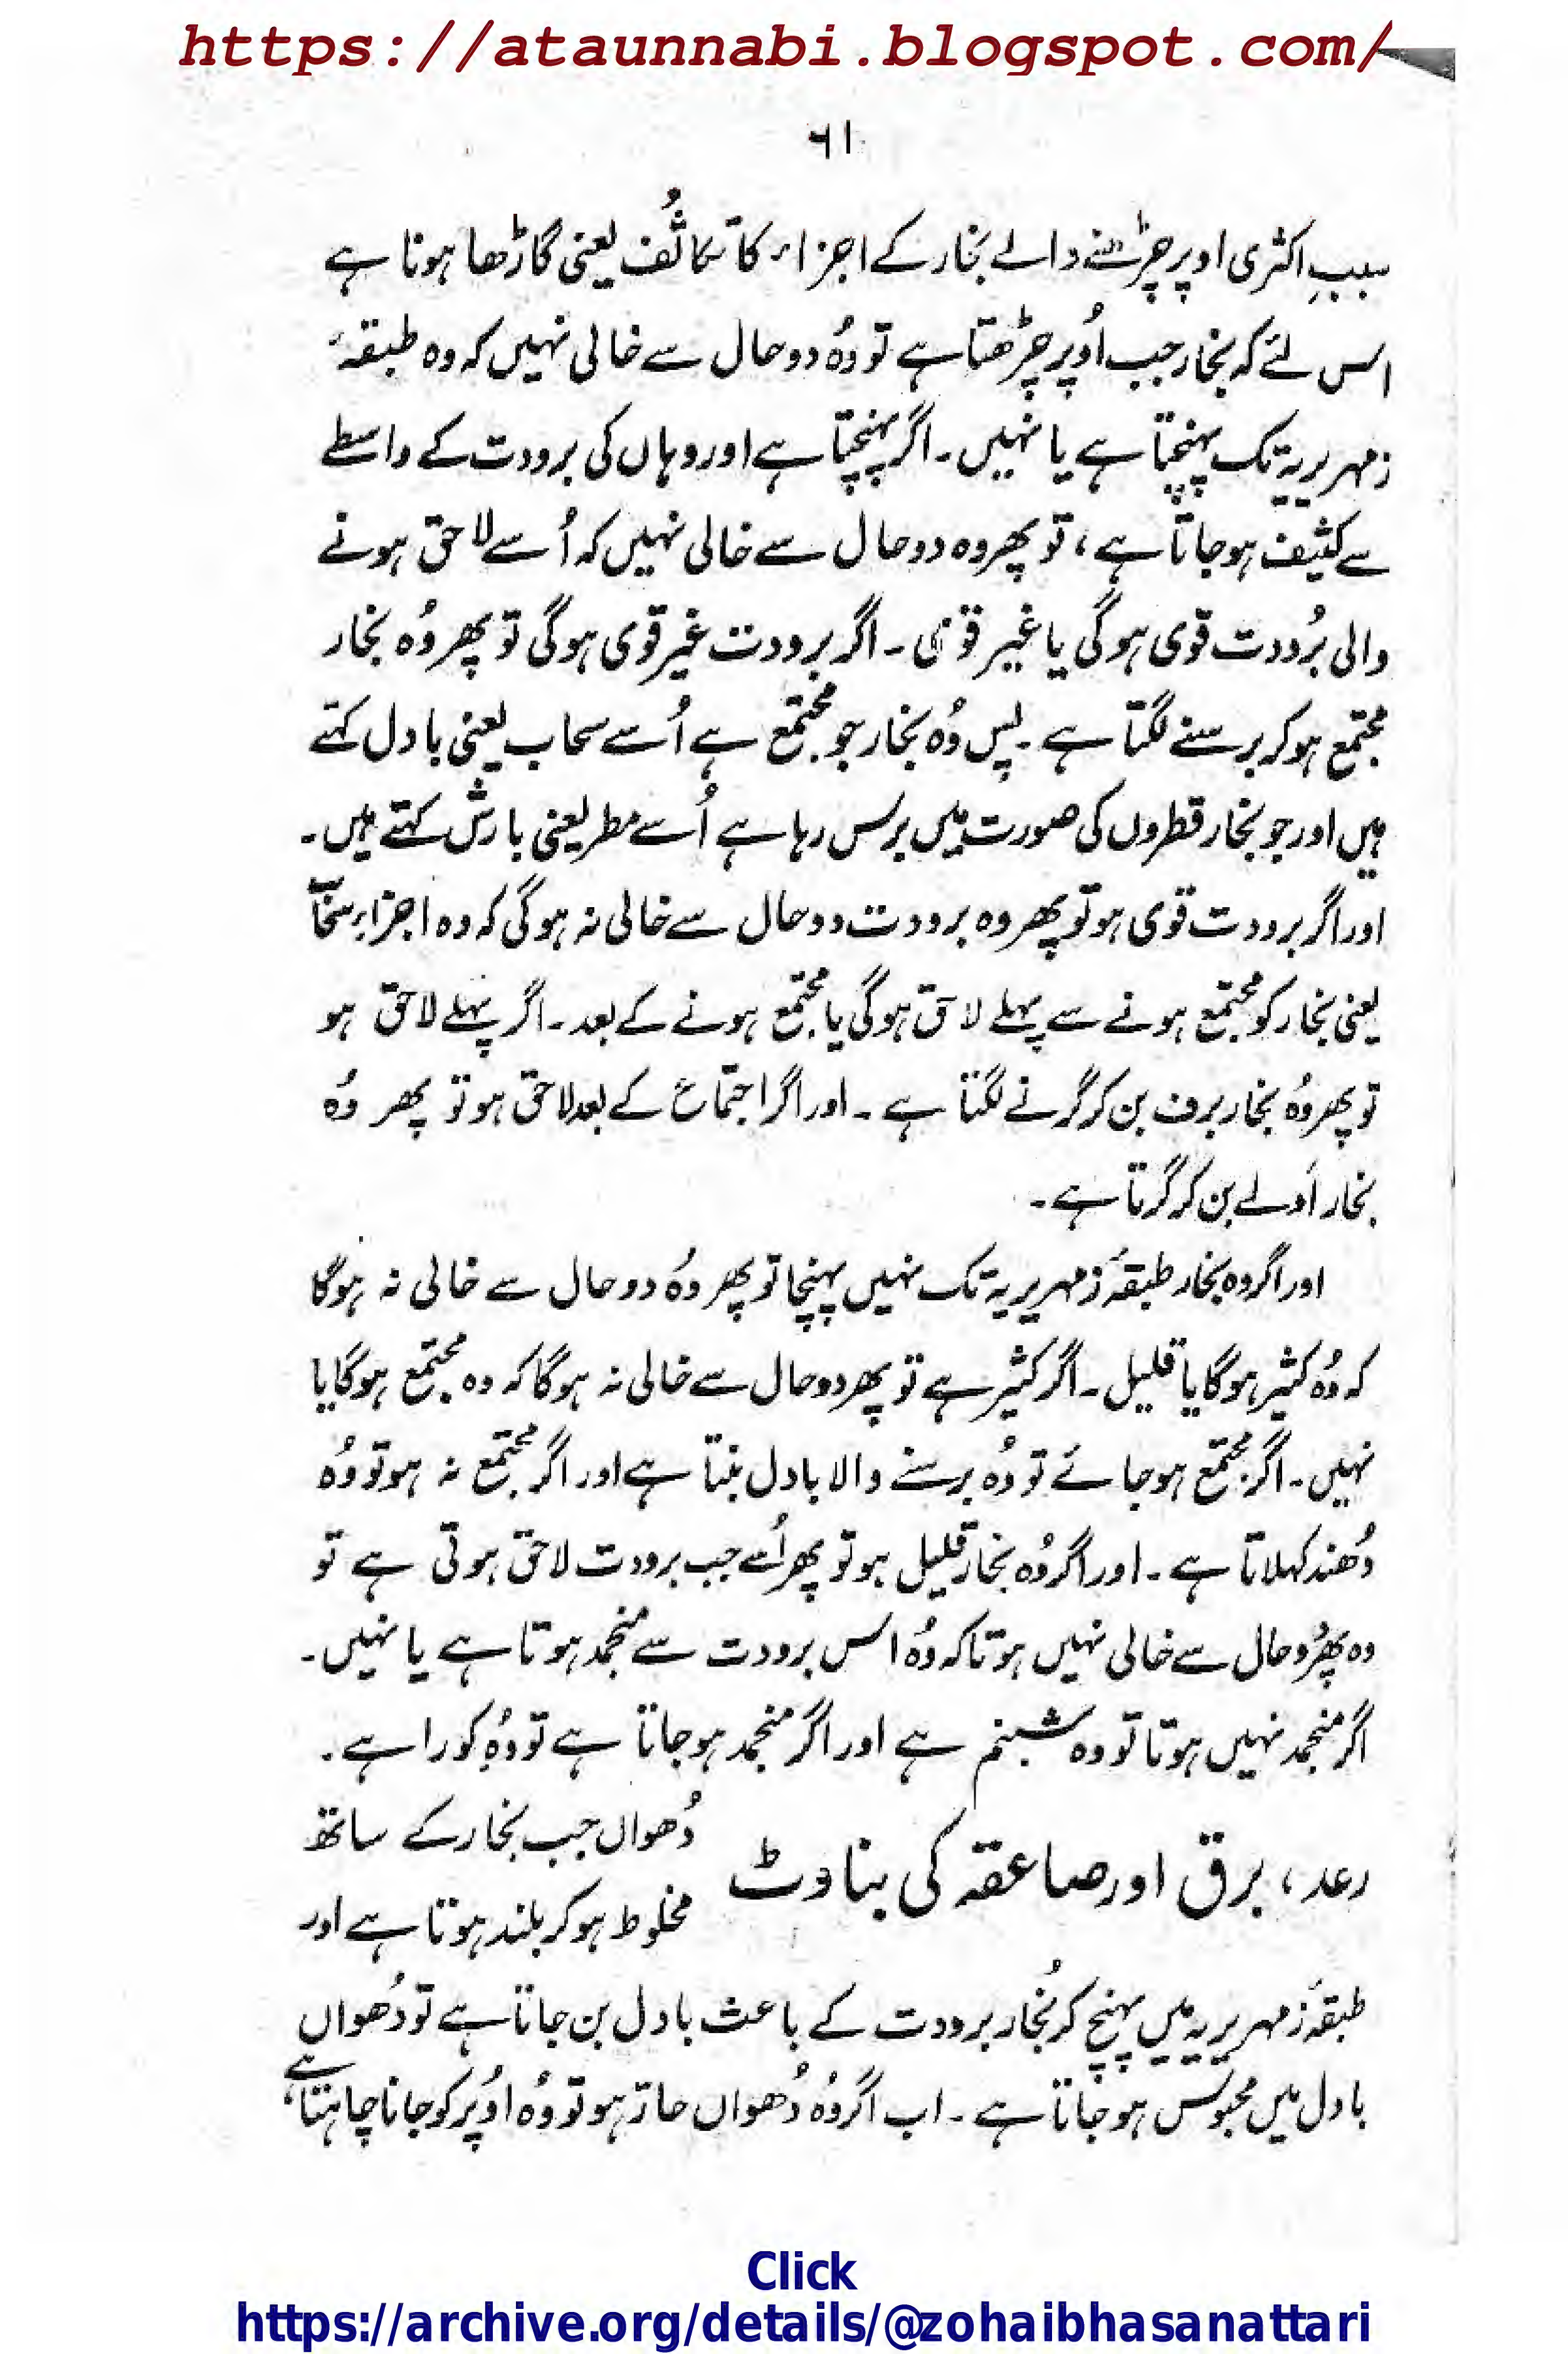 https://ataunnabi.blogspot.com/
٦١
سببِ اکثری اوپر چڑھنے والے بخار کے اجزاء کا تکاثُف یعنی گاڑھا ہونا ہے
اس لئے کہ بخار جب اُوپر چڑھتا ہے تو وُہ دو حال سے خالی نہیں کہ وہ طبقۂ
زمہریریہ تک پہنچتا ہے یا نہیں۔ اگر پہنچتا ہے اور وہاں کی برودت کے واسطے
سے کثیف ہوجاتا ہے، تو پھر وہ دو حال سے خالی نہیں کہ اُسے لاحق ہونے
والی بُرودت قوی ہوگی یا غیر قوی۔ اگر برودت غیر قوی ہوگی تو پھر وُہ بخار
مجتمع ہوکر برسنے لگتا ہے۔ پس وُہ بخار جو مجتمع ہے اُسے سحاب یعنی بادل کہتے
ہیں اور جو بخار قطروں کی صورت میں برس رہا ہے اُسے مطر یعنی بارش کہتے ہیں۔
اور اگر برودت قوی ہو تو پھر وہ برودت دو حال سے خالی نہ ہوگی کہ وہ اجزاءِ سخاّ
یعنی بخار کو مجتمع ہونے سے پہلے لاحق ہوگی یا مجتمع ہونے کے بعد۔ اگر پہلے لاحق ہو
تو پھر وُہ بخار برف بن کر گرنے لگتا ہے۔ اور اگر اجتماع کے بعد لاحق ہو تو پھر وُہ
بخار اَولے بن کر گرتا ہے۔
اور اگر وہ بخار طبقۂ زمہریریہ تک نہیں پہنچا تو پھر وُہ دو حال سے خالی نہ ہوگا
کہ وُہ کثیر ہوگا یا قلیل۔ اگر کثیر ہے تو پھر دو حال سے خالی نہ ہوگا کہ وہ مجتمع ہوگا یا
نہیں۔ اگر مجتمع ہوجائے تو وُہ برسنے والا بادل بنتا ہے اور اگر مجتمع نہ ہو تو وُہ
دُھند کہلاتا ہے۔ اور اگر وُہ بخار قلیل ہو تو پھر اُسے جب برودت لاحق ہوتی ہے تو
وہ پھر دو حال سے خالی نہیں ہوتا کہ وُہ اس برودت سے منجمد ہوتا ہے یا نہیں۔
اگر منجمد نہیں ہوتا تو وہ شبنم ہے اور اگر منجمد ہوجاتا ہے تو وُہ کورا ہے۔
رعد، برق اور صاعقہ کی بناوٹ
دُھواں جب بخار کے ساتھ
مخلوط ہوکر بلند ہوتا ہے اور
طبقۂ زمہریریہ میں پہنچ کر بُخار برودت کے باعث بادل بن جاتا ہے تو دُھواں
بادل میں محبوس ہوجاتا ہے۔ اب اگر وُہ دُھواں حار ہو تو وُہ اوُپر کو جانا چاہتا ہے،
Click
https://archive.org/details/@zohaibhasanattari